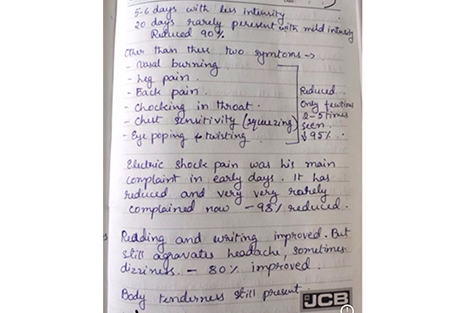 5-6 days with less intensity
20 days rarely peresent with mild intensity
Reduced 90%
Other than these two symtoms →
- Nasal burning
- Leg pain.
- Back pain.
- Chocking in throat.
- Chest sensitivity (squeezing)
- Eye poping & twisting
Reduced.
Only few times
2-5 times
seen
↓ 95%
Electric shock pain was his main
complaint in early days. It has
reduced and very very rarely
complained now - 98% reduced.
Redding and writing improved. But
still agravates headache, sometimes
dizziness. - 80% improved.
Body tenderness still present.
JCB